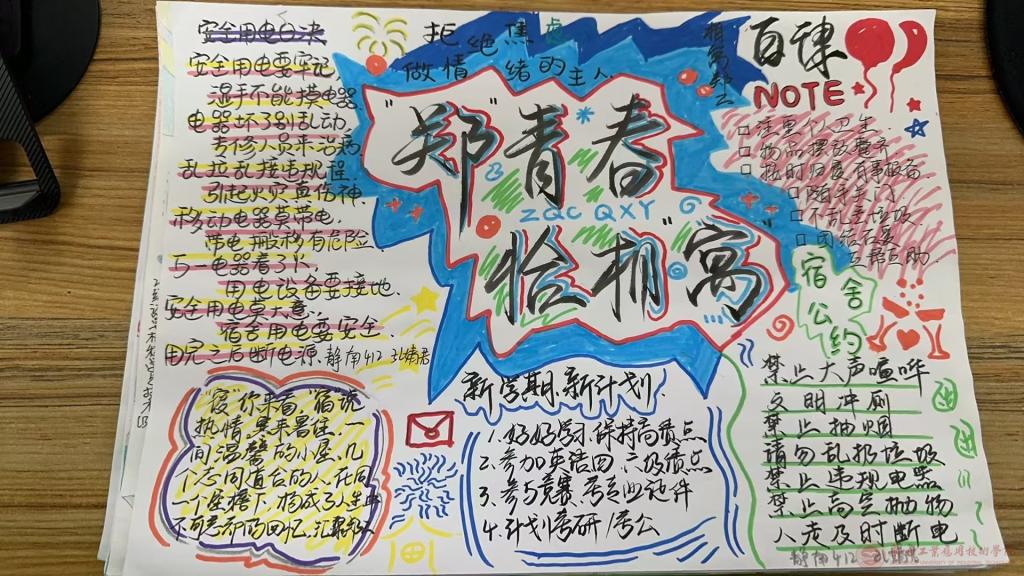 安全用电口决
安全用电要牢记,
湿手不能摸电器.
电器坏了别乱动,
专修人员来治病.
乱拉乱接违规程.
引起火灾真伤神.
移动电器莫带电,
带电搬移有危险
与一电器着了火,
用电设备要接地.
安全用电莫大意,
宿舍用电要安全
用完之后断电源.静南412
拒绝焦虑
做情绪的主人
"郑"青春
ZQC QXY
恰相"寓"
相寓郑工
百肆
NOTE
注重化卫生
物品摆放整齐
随手关门
不乱丢垃圾
团结友爱
互帮互助
宿舍公约
禁止大声喧哗
文明冲厕
禁止抽烟
请勿乱扔垃圾
禁止违规电器
禁止高空抛物
人走及时断电
静南412
"寝"你来看"宿"说
热情里来暑往,一
间温馨的小屋,几
个志同道合的人,在同
一个屋檐下,构成了人生中
不可忘却的回忆,汇聚
新学期.新计划.
1.好好学习.保持高绩点
2.参加英语四 六级绩点
3.参与竞赛.考专业证件
4.计划考研/考公
工业应用技术学